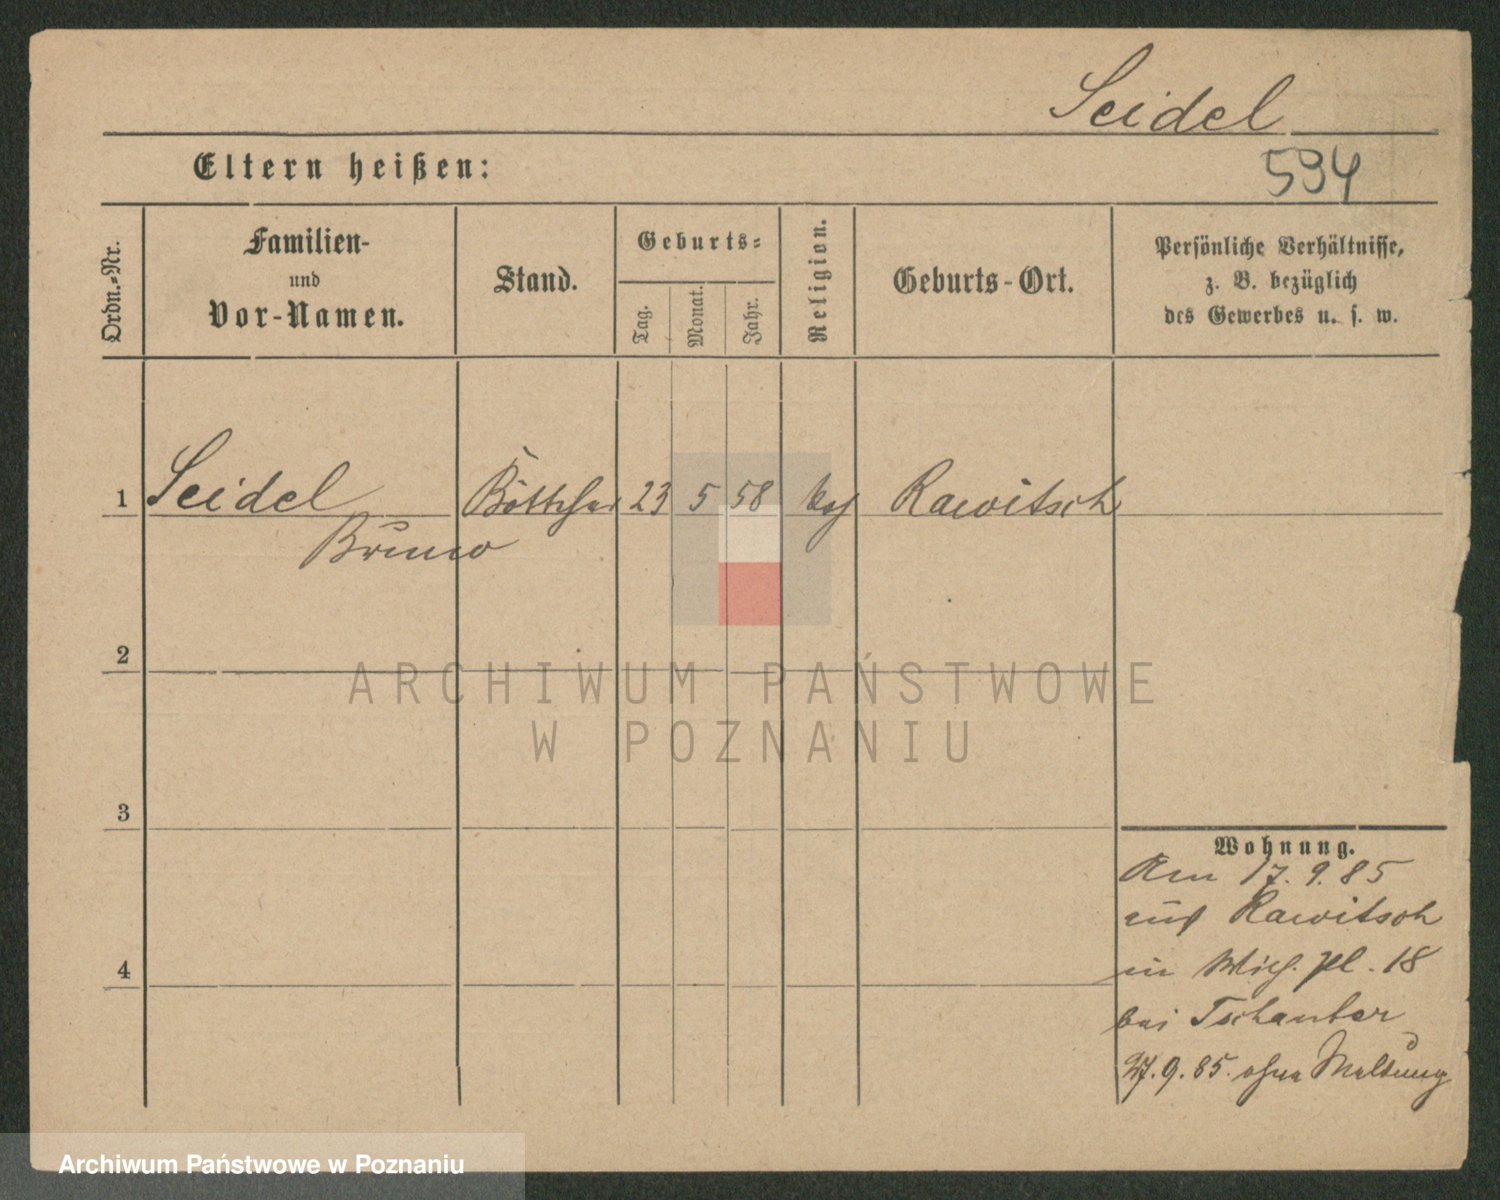 Seidel
Eltern heißen:
594
Ordn.-Nr.
Familien-
und
Vor-Namen.
Stand.
Geburts-
Tag.
Monat.
Jahr.
Religion.
Geburts-Ort.
Persönliche Verhältnisse,
z. B. bezüglich
des Gewerbes u. s. w.
1 Seidel Böttcher 23 5 58 Rawitsch
Bruno
2
ARCHIWUM PAŃSTWOWE
W POZNANIU
3
Wohnung.
Am 17.9.85
aus Rawitsch
in pl. 18
4
bei Tschanter
27.9.85. ohne Meldung
Archiwum Państwowe w Poznaniu